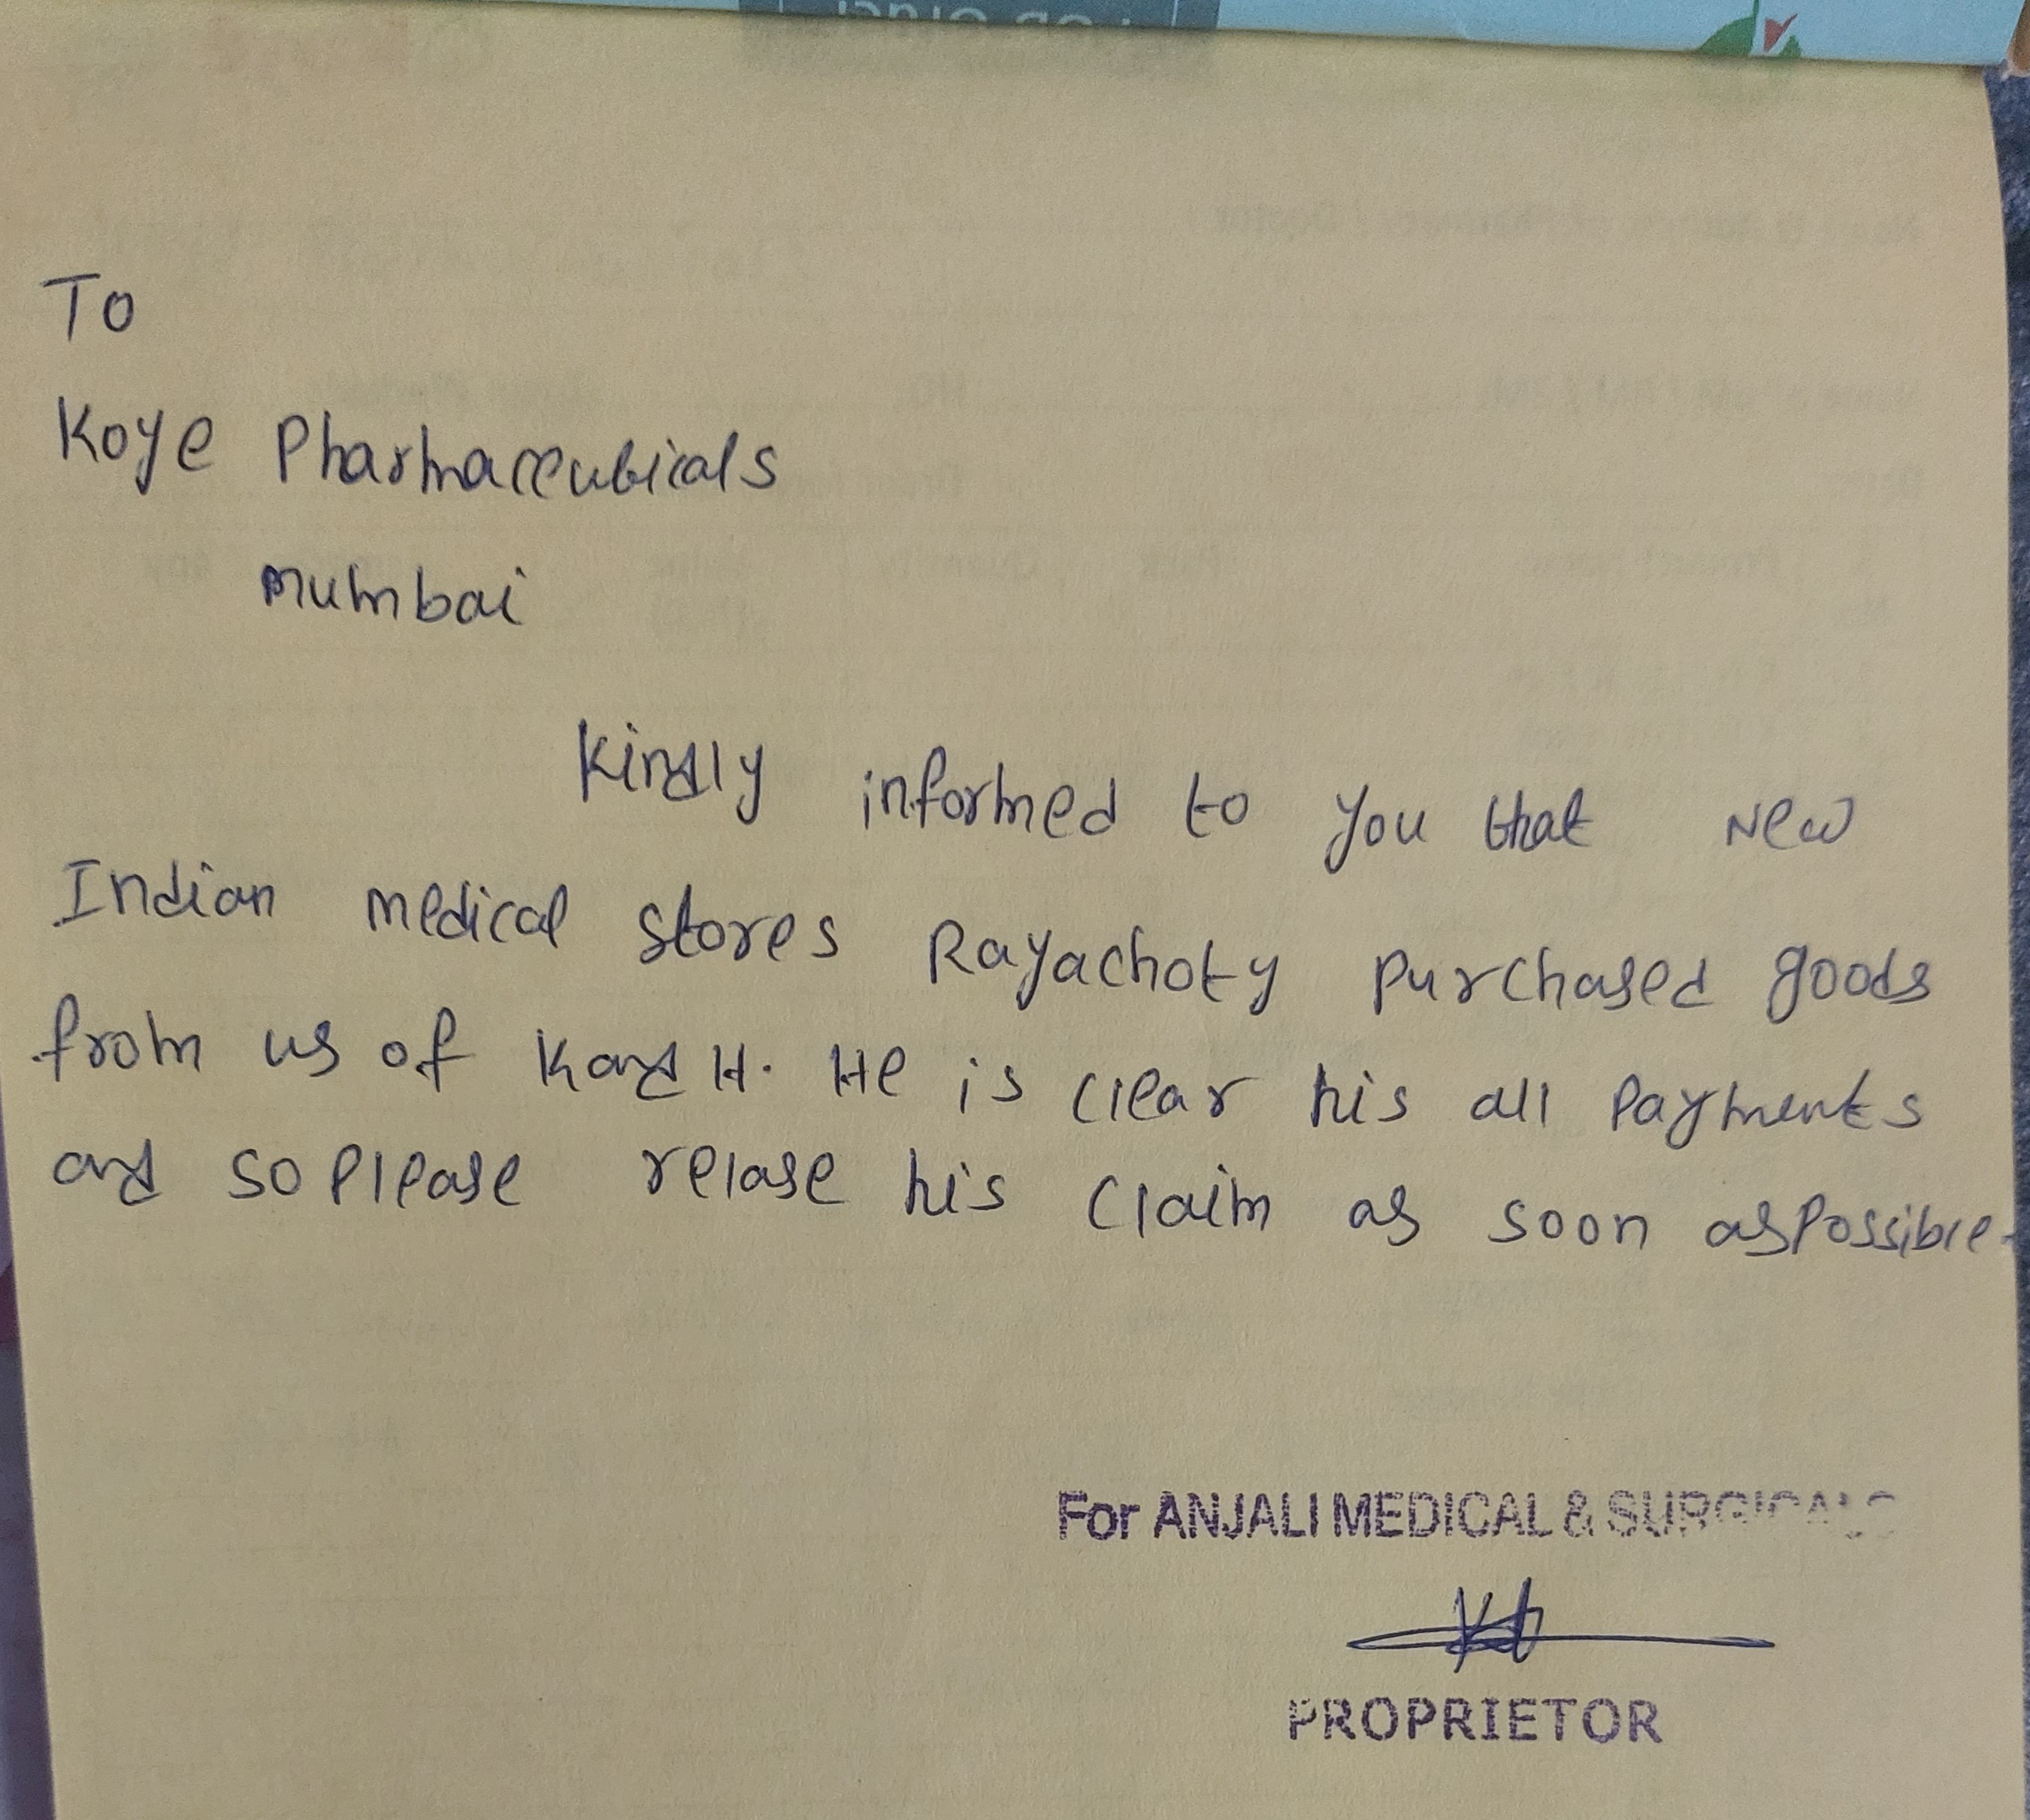 To
Koye Pharmaceuticals
Mumbai
Kindly informed to you that New
Indian medical stores Rayachoty purchased goods
from us of K and H. He is clear his all payments
and so please relase his claim as soon as possible.
For ANJALI MEDICAL & SURGICALS
PROPRIETOR